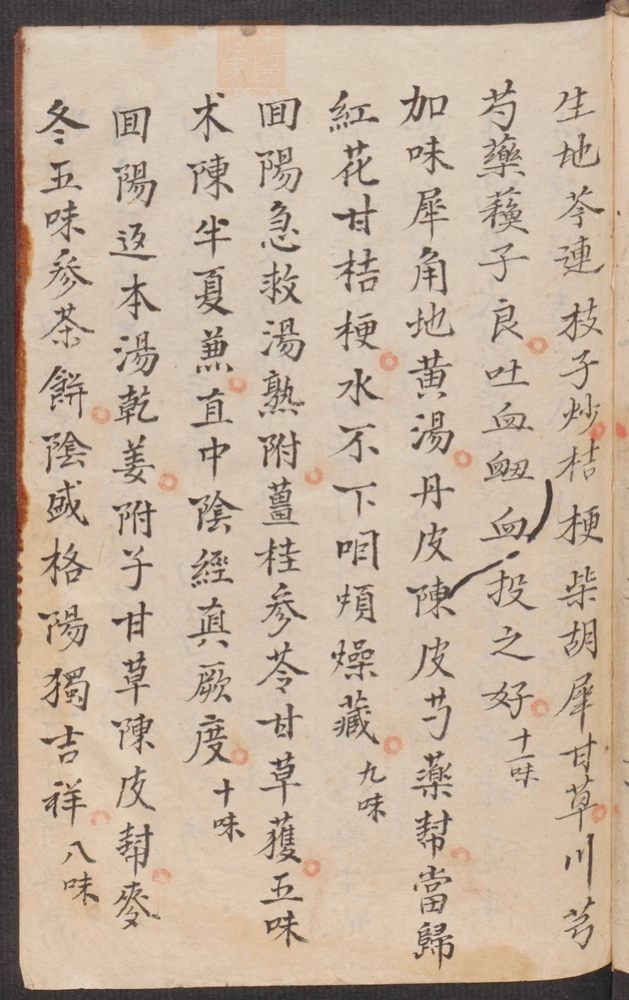 生地芩連枝子炒桔梗柴胡犀甘草川芎
芍藥蘓子良吐血衂血投之好十一味
加味犀角地黄湯丹皮陳皮芍藥幇當歸
紅花甘桔梗水不下咽煩燥藏九味
囬陽急救湯熟附薑桂參苓甘草獲五味
术陳半夏兼直中陰經真厥度十味
囬陽返本湯乾姜附子甘草陳皮幇麥
冬五味參茶餅陰盛格陽獨吉祥八味